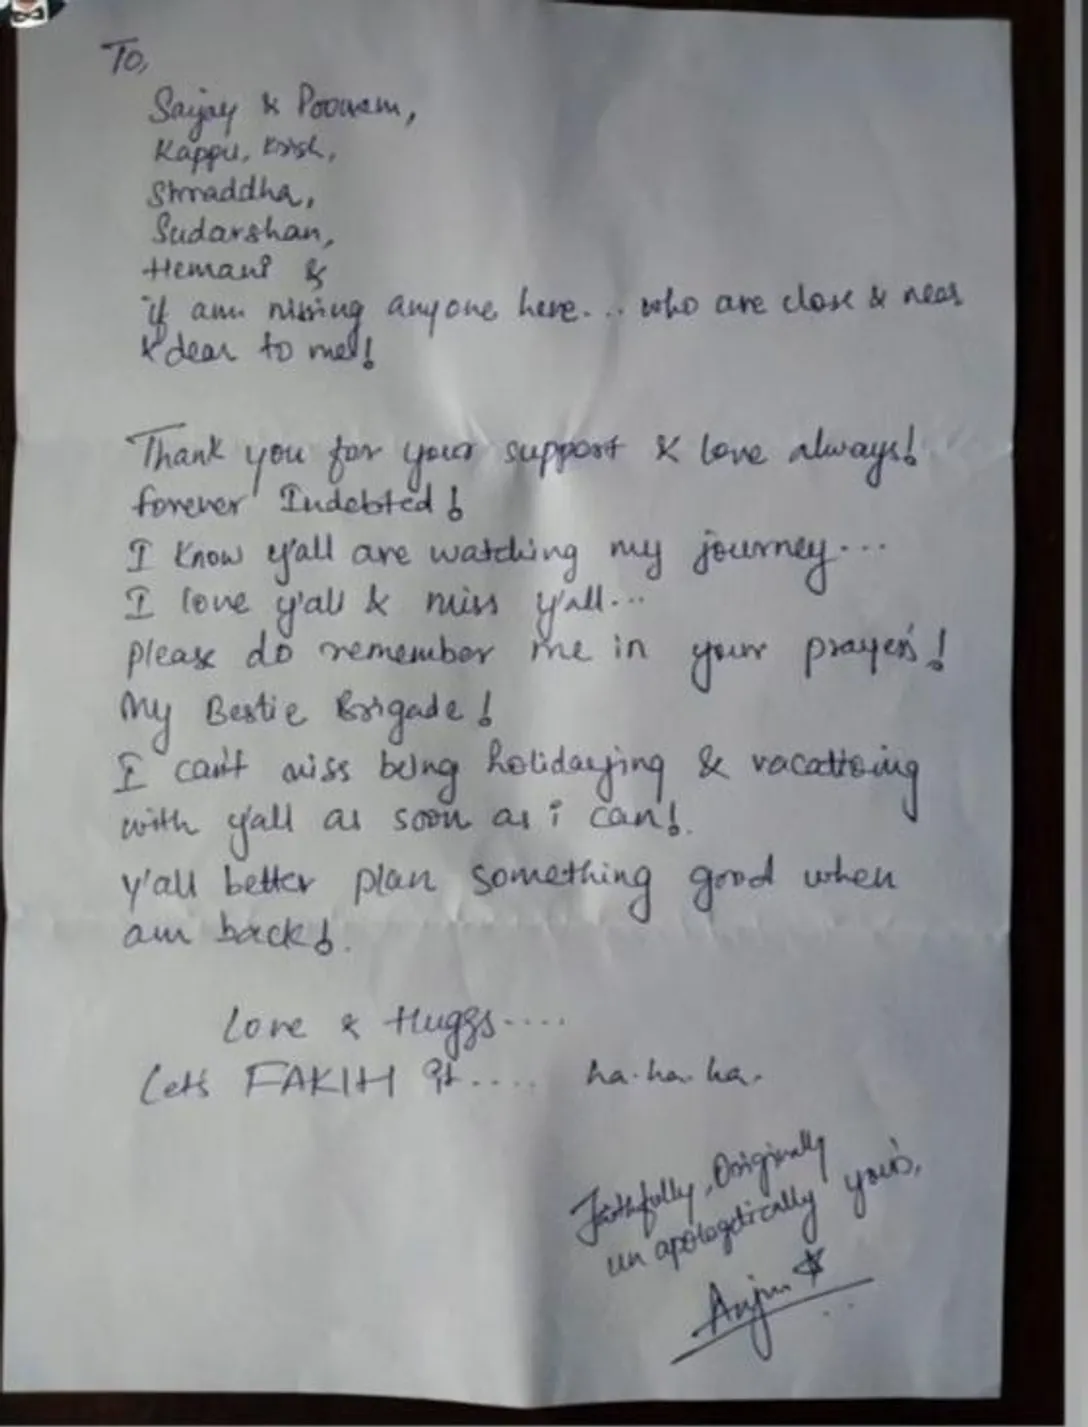 To,
Saijay & Poonam,
Kappu, Krish,
Shraddha,
Sudarshan,
Hemani &
if am missing anyone here... who are close & near
& dear to me!
Thank you for your support & love always!
forever Indebted!
I know y'all are watching my journey...
I love y'all & miss y'all...
please do remember me in your prayers!
My Bestie Brigade!
I can't miss being holidaying & vacationing
with y'all as soon as i can!.
y'all better plan something good when
am back!.
Love & Huggs....
Let's FAKIH it.... ha. ha. ha.
Faithfully, Originally
un apologetically your's,
Anjum